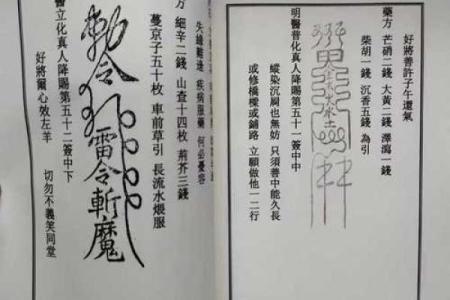 好將善許子午還氣
藥方 芒硝二錢 大黃二錢 澤瀉一錢
柴胡一錢 沉香五錢 為引
明醫普化真人降賜第五十一簽中中
縱染沉屙也無妨 只須善中能久長
或修橋樑或鋪路 立願做他一二行
失緣難逢 疾病服藥 何必憂容
方 細辛二錢 山查十四枚 荊芥三錢
蔓京子五十枚 車前草引 長流水煨服
勅令 雷令斬魔
醫立化真人降賜第五十二簽中下
好將爾心效左羊 切勿不義笑同堂